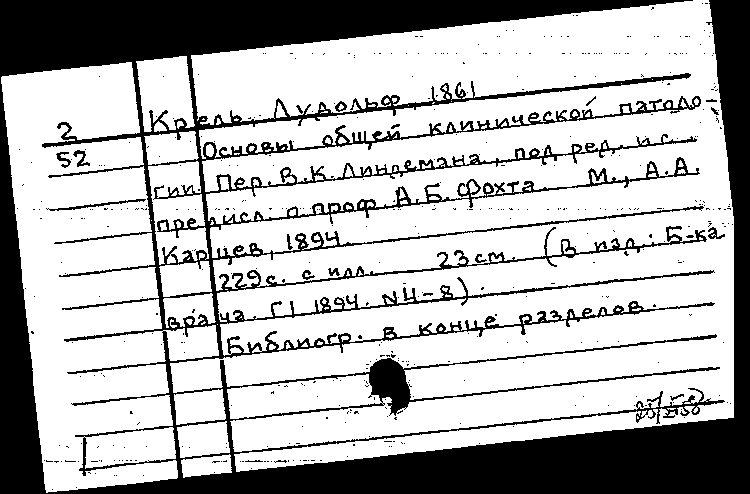 2 Крель, Лудольф, 1861
52 Основы общей клинической патоло-
гии. Пер. В.К. Линдемана, под ред. и с
предисл. п. проф. А.Б. Фохта. М., А.А.
Карцев, 1894.
229 с. с илл. 23 см. (В изд.: Б-ка
врача. Г1 1894. N4-8).
Библиогр. в конце разделов.